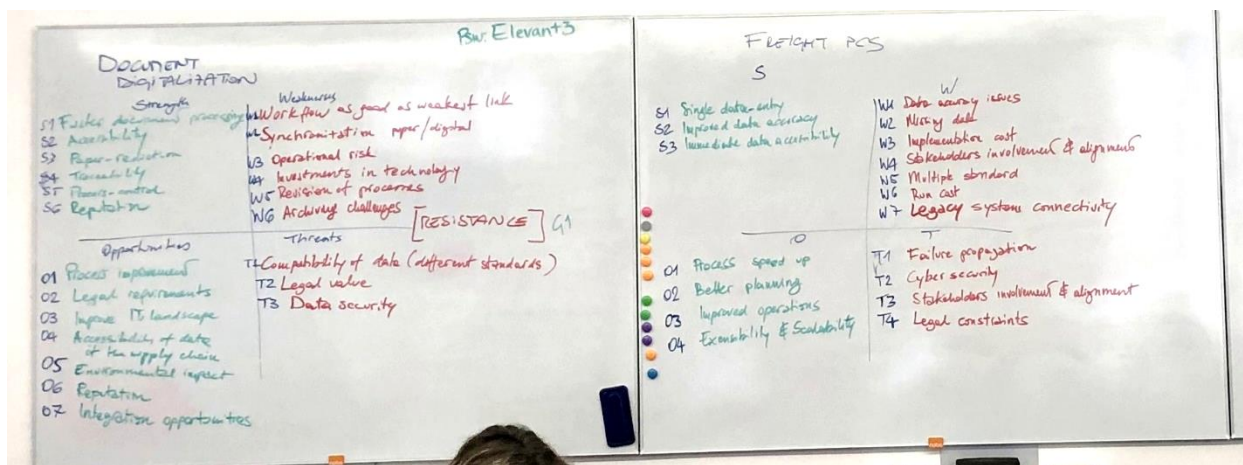 Bw: Elevant3
DOCUMENT
DIGITALIZATION
Strength
S1 Faster document processing
S2 Accessibility
S3 Paper-reduction
S4 Traceability
S5 control
S6 Reputation
Weakness
W1 Workflow as good as weakest link
W2 Synchronization paper/digital
W3 Operational risk
W4 Investments in technology
W5 Revision of processes
W6 Archiving challenges
[RESISTANCE] G1
Opportunities
O1 Process improvement
O2 Legal requirements
O3 Improve IT landscape
O4 Accessibility of data
of the supply chain
O5 Environmental impact
O6 Reputation
O7 Integration opportunities
Threats
T1 Compatibility of data (different standards)
T2 Legal value
T3 Data security
FREIGHT PCS
S
S1 Single data-entry
S2 Improved data accuracy
S3 Immediate data accessibility
W
W1 Data accuracy issues
W2 Missing data
W3 Implementation cost
W4 Stakeholders involvement & alignment
W5 Multiple standard
W6 Run cost
W7 Legacy systems connectivity
O
O1 Process speed up
O2 Better planning
O3 Improved operations
O4 Extensibility & Scalability
T
T1 Failure propagation
T2 Cyber security
T3 Stakeholders involvement & alignment
T4 Legal constraints